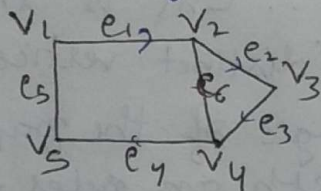 V1 e1 V2
e2
e5 e6 V3
e3
V5 e4 V4